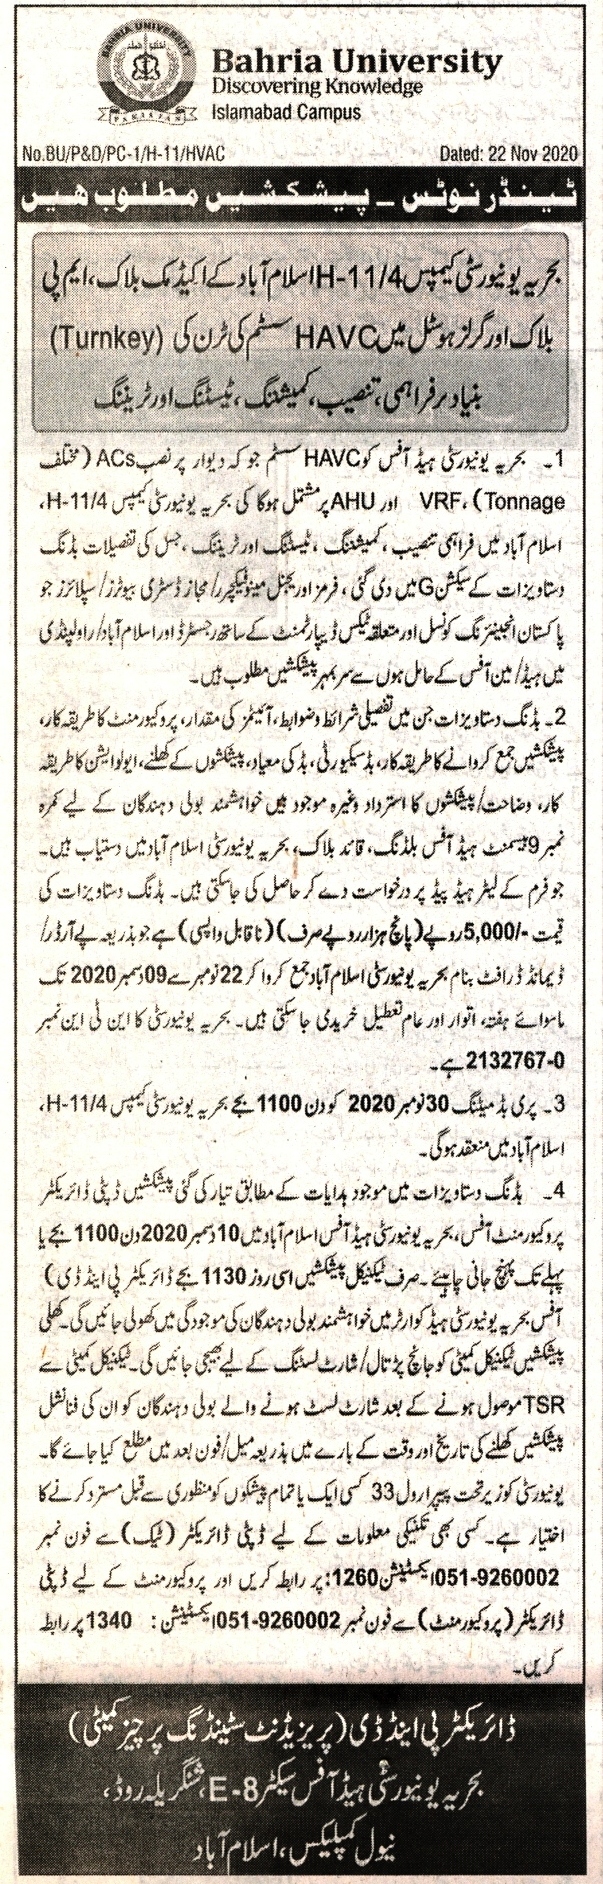 BAHRIA UNIVERSITY
PAKISTAN
Bahria University
Discovering Knowledge
Islamabad Campus
No.BU/P&D/PC-1/H-11/HVAC Dated: 22 Nov 2020
ٹینڈر نوٹس ۔ پیشکشیں مطلوب ھیں
بحریہ یونیورسٹی کیمپس H-11/4 اسلام آباد کے اکیڈمک بلاک، ایم پی
بلاک اور گرلز ہوسٹل میں HAVC سسٹم کی ٹرن کی (Turnkey)
بنیاد پر فراہمی، تنصیب، کمیشننگ، ٹیسٹنگ اور ٹریننگ
1۔ بحریہ یونیورسٹی ہیڈ آفس کو HAVC سسٹم جو کہ دیوار پر نصب ACs (مختلف
Tonnage)، VRF اور AHU پر مشتمل ہوگا کی بحریہ یونیورسٹی کیمپس H-11/4،
اسلام آباد میں فراہمی تنصیب، کمیشننگ، ٹیسٹنگ اور ٹریننگ، جس کی تفصیلات بڈنگ
دستاویزات کے سیکشن G میں دی گئی، فرمز اوریجنل مینوفیکچرر/مجاز ڈسٹری بیوٹرز/سپلائرز جو
پاکستان انجینئرنگ کونسل اور متعلقہ ٹیکس ڈیپارٹمنٹ کے ساتھ رجسٹرڈ اور اسلام آباد/راولپنڈی
میں ہیڈ/مین آفس کے حامل ہوں سے سربمہر پیشکشیں مطلوب ہیں۔
2۔ بڈنگ دستاویزات جن میں تفصیلی شرائط وضوابط، آئیٹمز کی مقدار، پروکیورمنٹ کا طریقہ کار،
پیشکشیں جمع کروانے کا طریقہ کار، بڈ سیکیورٹی، بڈ کی معیاد، پیشکشوں کے کھلنے، ایولوایشن کا طریقہ
کار، وضاحت/پیشکشوں کا استرداد وغیرہ موجود ہیں خواہشمند بولی دہندگان کے لیے کمرہ
نمبر 9 بیسمنٹ ہیڈ آفس بلڈنگ، قائد بلاک، بحریہ یونیورسٹی اسلام آباد میں دستیاب ہیں۔
جو فرم کے لیٹر ہیڈ پیڈ پر درخواست دے کر حاصل کی جاسکتی ہیں۔ بڈنگ دستاویزات کی
قیمت -/5,000 روپے (پانچ ہزار روپے صرف) (ناقابل واپسی) ہے جو بذریعہ پے آرڈر/
ڈیمانڈ ڈرافٹ بنام بحریہ یونیورسٹی اسلام آباد جمع کروا کر 22 نومبر سے 09 دسمبر 2020 تک
ماسوائے ہفتہ، اتوار اور عام تعطیل خریدی جاسکتی ہیں۔ بحریہ یونیورسٹی کا این ٹی این نمبر
2132767-0 ہے۔
3۔ پری بڈ میٹنگ 30 نومبر 2020 کو دن 1100 بجے بحریہ یونیورسٹی کیمپس H-11/4،
اسلام آباد میں منعقد ہوگی۔
4۔ بڈنگ دستاویزات میں موجود ہدایات کے مطابق تیار کی گئی پیشکشیں ڈپٹی ڈائریکٹر
پروکیورمنٹ آفس، بحریہ یونیورسٹی ہیڈ آفس اسلام آباد میں 10 دسمبر 2020 دن 1100 بجے یا
پہلے تک پہنچ جانی چاہیئے۔ صرف ٹیکنیکل پیشکشیں اسی روز 1130 بجے ڈائریکٹر پی اینڈ ڈی)
آفس بحریہ یونیورسٹی ہیڈ کوارٹر میں خواہشمند بولی دہندگان کی موجودگی میں کھولی جائیں گی۔ کھلی
پیشکشیں ٹیکنیکل کمیٹی کو جانچ پڑتال/شارٹ لسٹنگ کے لیے بھیجی جائیں گی۔ ٹیکنیکل کمیٹی سے
TSR موصول ہونے کے بعد شارٹ لسٹ ہونے والے بولی دہندگان کو ان کی فنانشل
پیشکشیں کھلنے کی تاریخ اور وقت کے بارے میں بذریعہ میل/فون بعد میں مطلع کیا جائے گا۔
یونیورسٹی کو زیر تحت پیپرا رول 33 کسی ایک یا تمام پیشکوں کو منظوری سے قبل مسترد کرنے کا
اختیار ہے۔ کسی بھی تکنیکی معلومات کے لیے ڈپٹی ڈائریکٹر (ٹیک) سے فون نمبر
051-9260002 ایکسٹینشن 1260: پر رابطہ کریں اور پروکیورمنٹ کے لیے ڈپٹی
ڈائریکٹر (پروکیورمنٹ) سے فون نمبر 051-9260002 ایکسٹینشن: 1340 پر رابطہ
کریں۔
ڈائریکٹر پی اینڈ ڈی (پریزیڈنٹ سٹینڈنگ پرچیز کمیٹی)
بحریہ یونیورسٹی ہیڈ آفس سیکٹر E-8، شنگریلہ روڈ،
نیول کمپلیکس، اسلام آباد